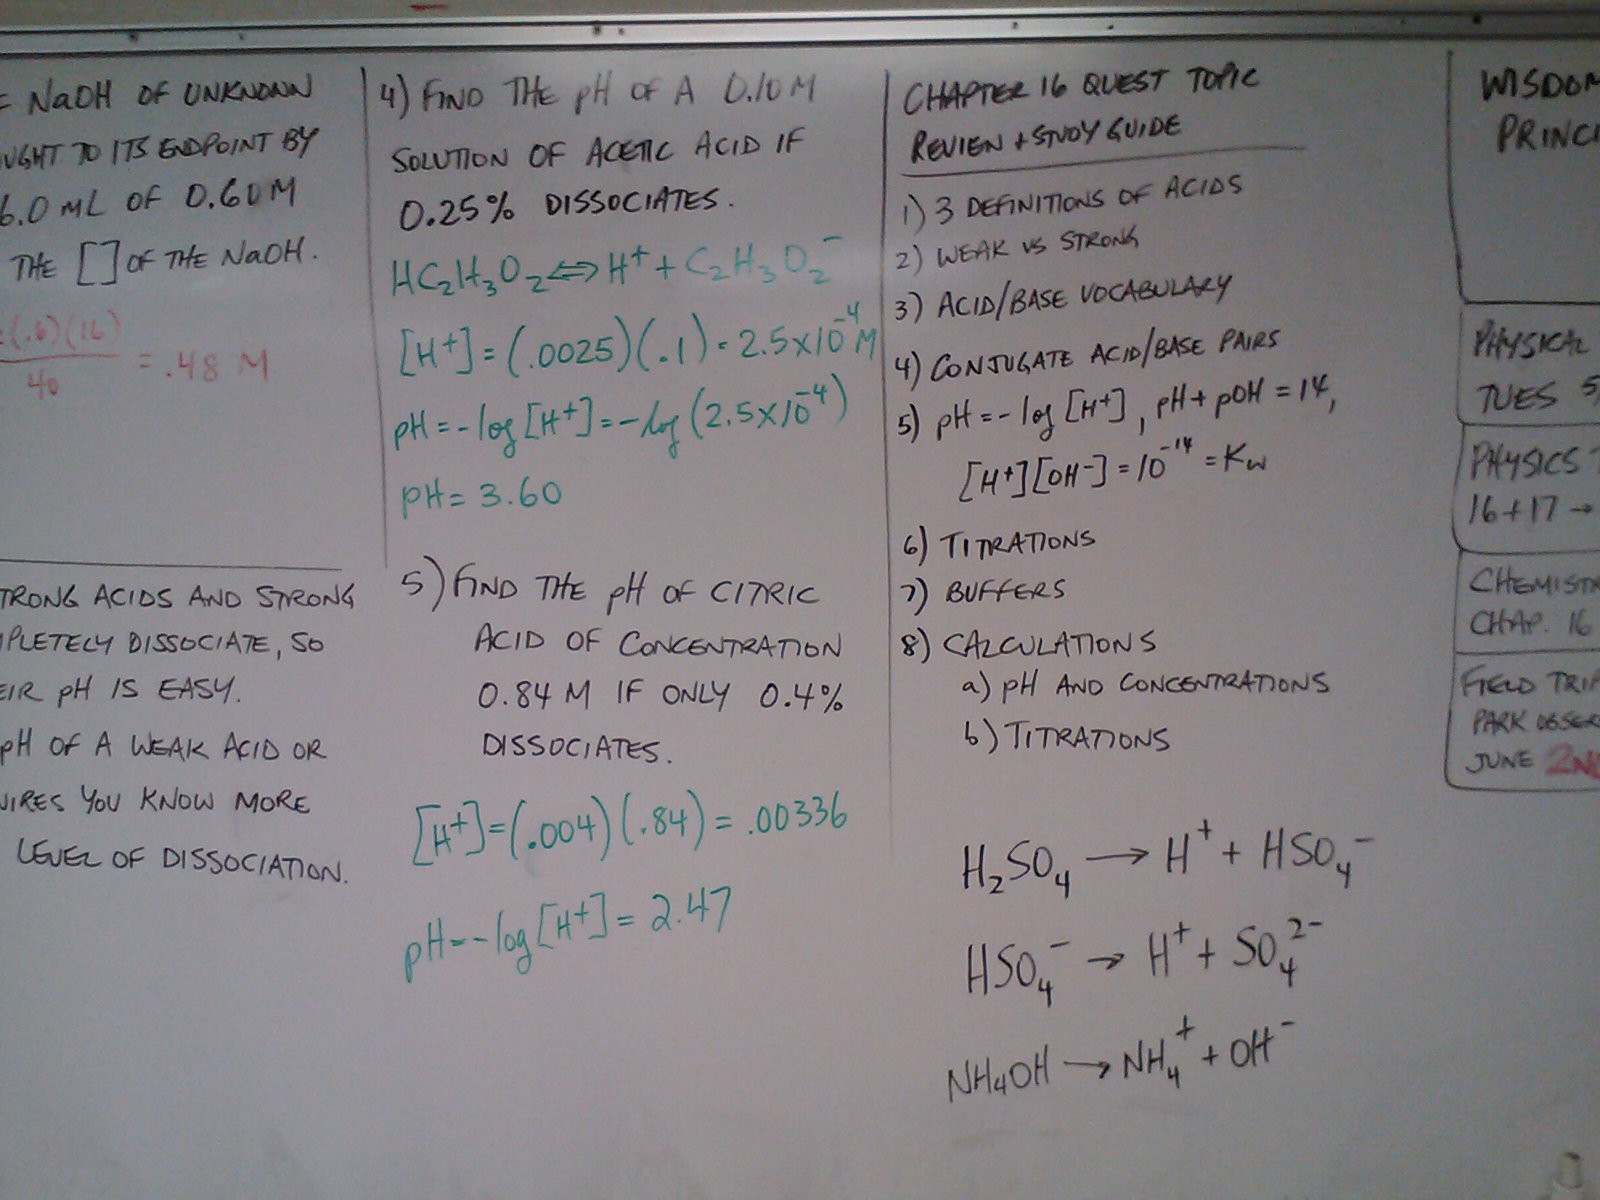 = NaOH OF UNKNOWN
UGHT TO ITS ENDPOINT BY
6.0 mL OF 0.60M
THE [ ] OF THE NaOH.
= (.6)(16)
40
= .48 M
TRONG ACIDS AND STRONG
MPLETELY DISSOCIATE, SO
EIR pH IS EASY.
pH OF A WEAK ACID OR
UIRES YOU KNOW MORE
LEVEL OF DISSOCIATION.
4) FIND THE pH OF A 0.10 M
SOLUTION OF ACETIC ACID IF
0.25% DISSOCIATES.
HC₂H₃O₂ ⇔ H⁺ + C₂H₃O₂⁻
[H⁺] = (.0025)(.1) = 2.5×10⁻⁴ M
pH = -log [H⁺] = -log (2.5×10⁻⁴)
pH = 3.60
5) FIND THE pH OF CITRIC
ACID OF CONCENTRATION
0.84 M IF ONLY 0.4%
DISSOCIATES.
[H⁺] = (.004)(.84) = .00336
pH = -log [H⁺] = 2.47
CHAPTER 16 QUEST TOPIC
REVIEW + STUDY GUIDE
1) 3 DEFINITIONS OF ACIDS
2) WEAK VS STRONG
3) ACID/BASE VOCABULARY
4) CONJUGATE ACID/BASE PAIRS
5) pH = -log [H⁺], pH + pOH = 14,
[H⁺][OH⁻] = 10⁻¹⁴ = Kw
6) TITRATIONS
7) BUFFERS
8) CALCULATIONS
a) pH AND CONCENTRATIONS
b) TITRATIONS
H₂SO₄ → H⁺ + HSO₄⁻
HSO₄⁻ → H⁺ + SO₄²⁻
NH₄OH → NH₄⁺ + OH⁻
WISDOM
PRINCI
PHYSICAL
TUES 5/
PHYSICS T
16+17 →
CHEMISTR
CHAP. 16
FIELD TRIP
PARK OBSER
JUNE 2ND